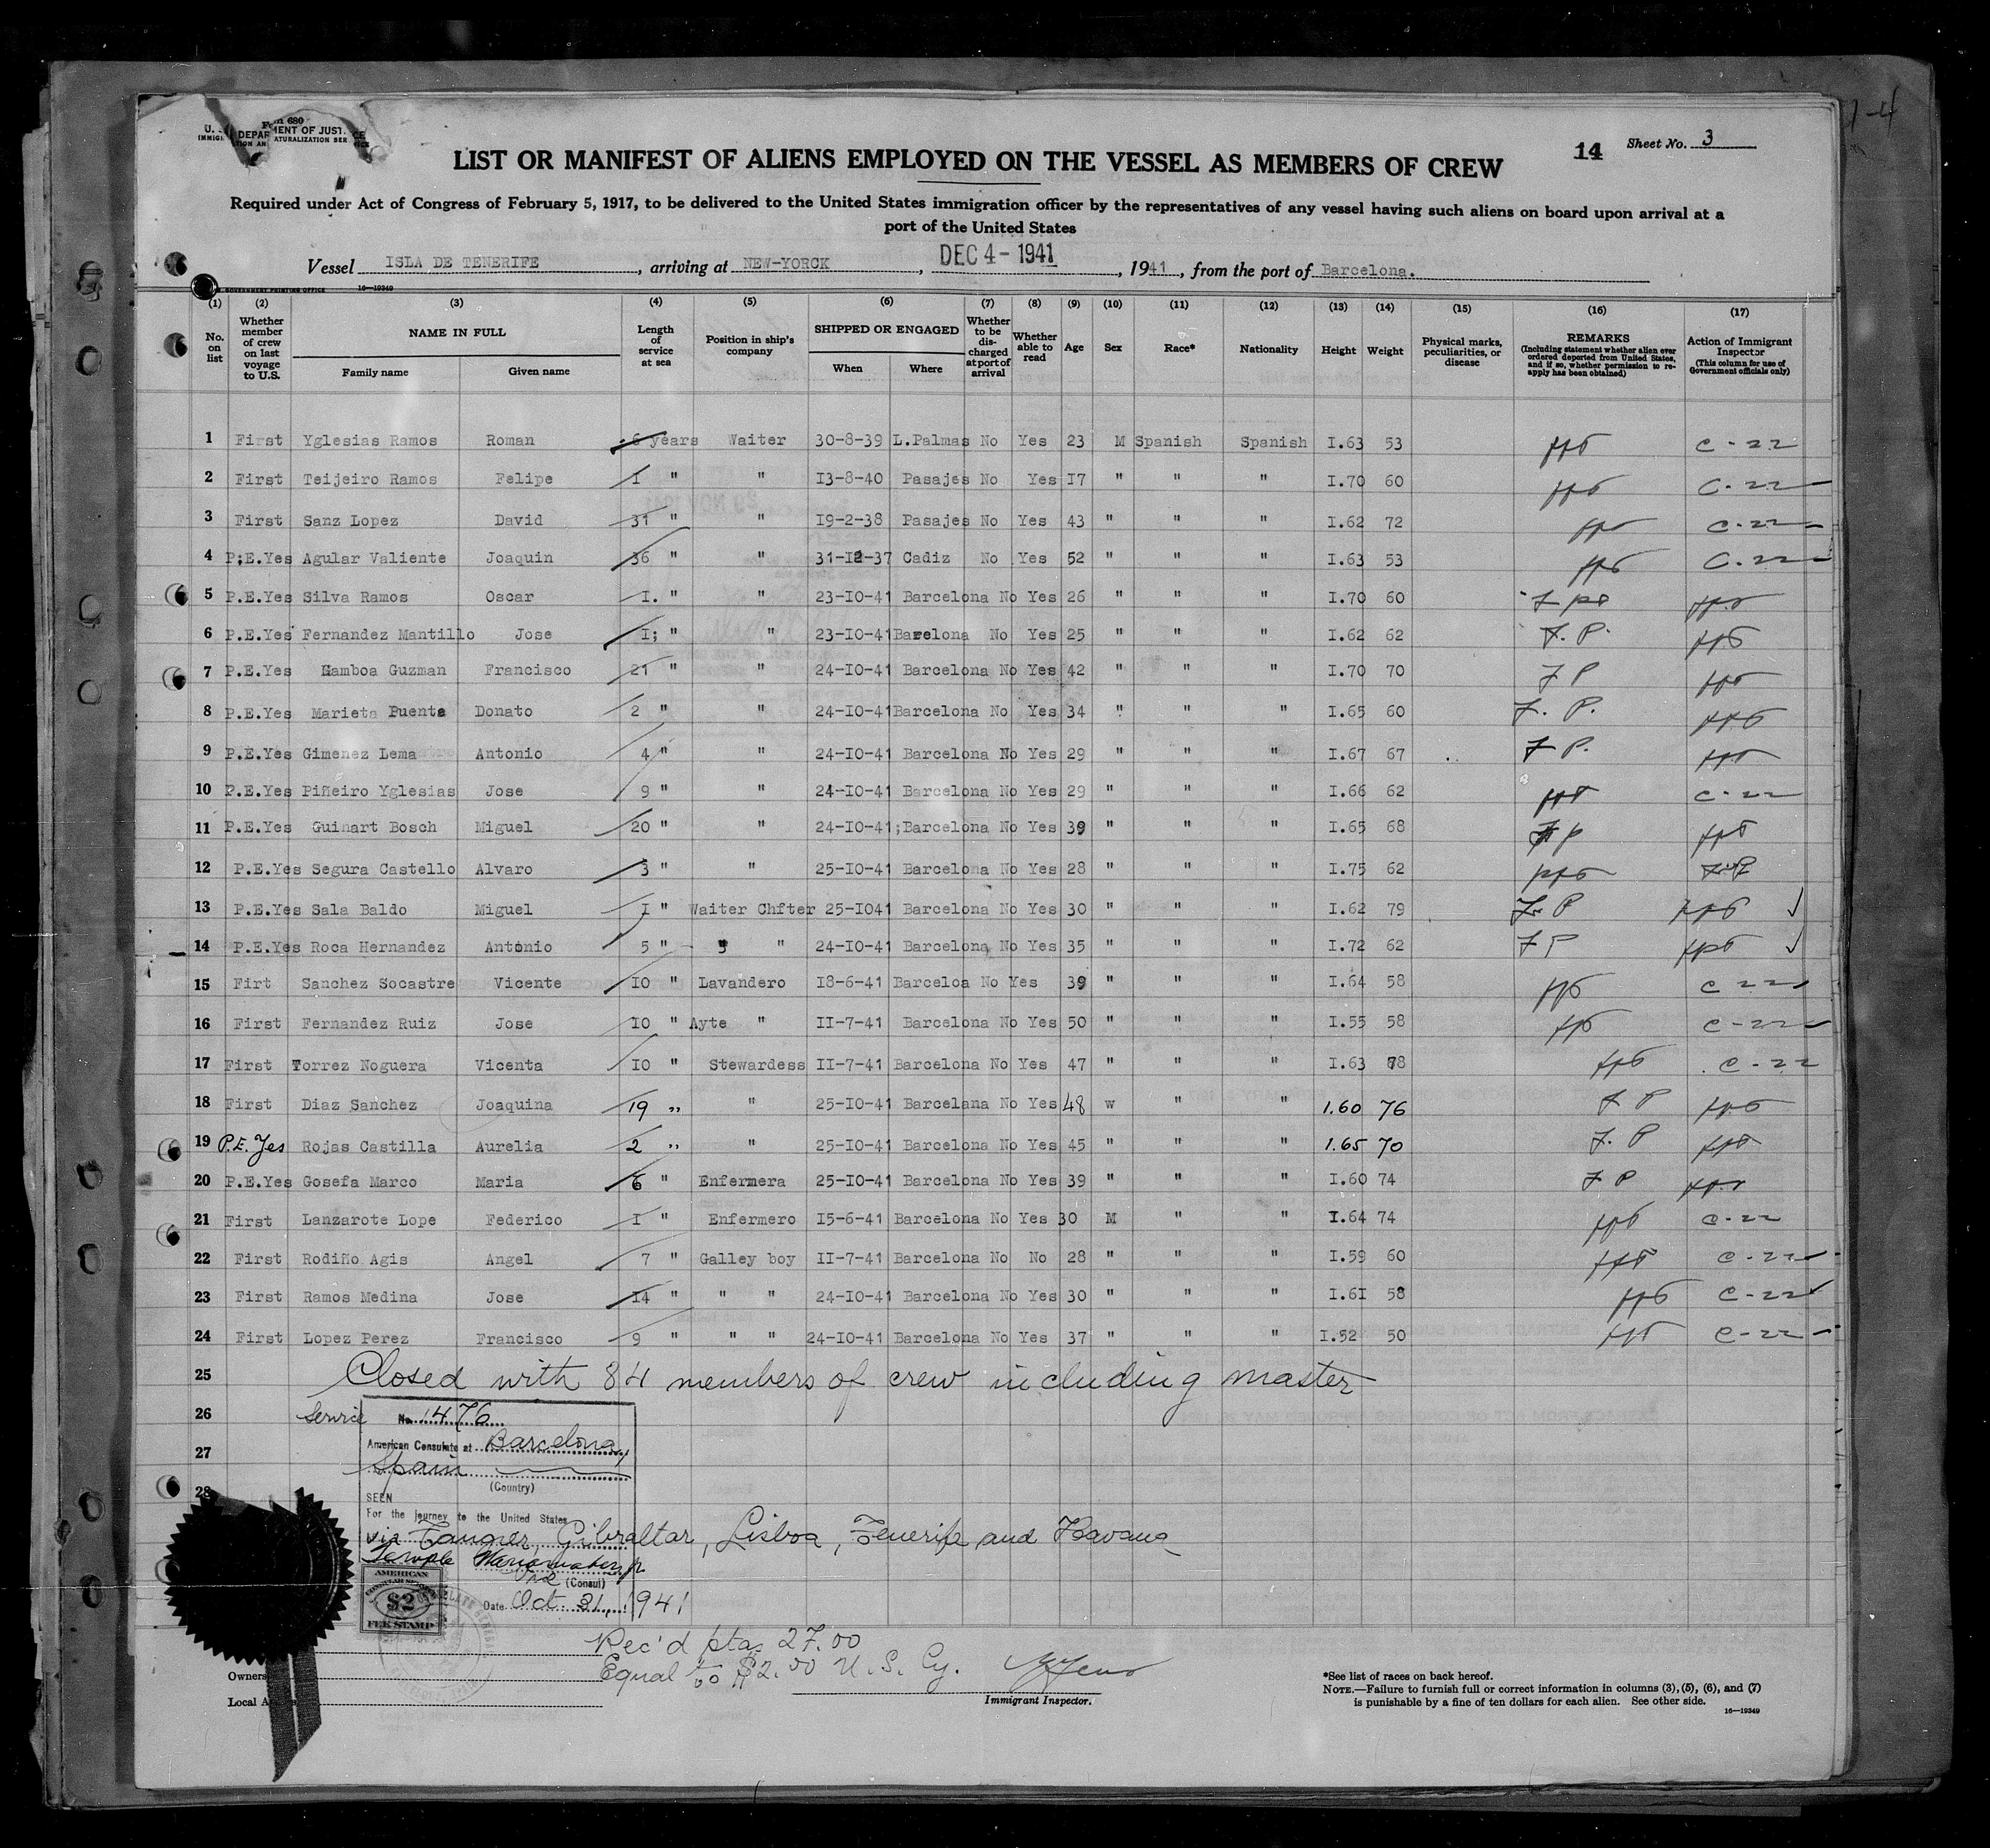 Form 680
14
Sheet No. 3
LIST OR MANIFEST OF ALIENS EMPLOYED ON THE VESSEL AS MEMBERS OF CREW
Required under Act of Congress of February 5, 1917, to be delivered to the United States immigration officer by the representatives of any vessel having such aliens on board upon arrival at a
port of the United States
Vessel ISLA DE TENERIFE, arriving at NEW-YORCK, DEC 4 - 1941, 1941, from the port of Barcelona.
16—19349
(1) (2) (3) (4) (5) (6) (7) (8) (9) (10) (11) (12) (13) (14) (15) (16) (17)
No. on list
Whether member of crew on last voyage to U.S.
NAME IN FULL
Family name
Given name
Length of service at sea
Position in ship's company
SHIPPED OR ENGAGED
When
Where
Whether to be discharged at port of arrival
Whether able to read
Age
Sex
Race*
Nationality
Height
Weight
Physical marks, peculiarities, or disease
REMARKS
(Including statement whether alien ever ordered deported from United States, and if so, whether permission to re-apply has been obtained)
Action of Immigrant Inspector
(This column for use of Government officials only)
1 First Yglesias Ramos Roman 6 years Waiter 30-8-39 L.Palmas No Yes 23 M Spanish Spanish I.63 53 ppt C-22
2 First Teijeiro Ramos Felipe I " " I3-8-40 Pasajes No Yes I7 " " " I.70 60 ppt C-22
3 First Sanz Lopez David 31 " " I9-2-38 Pasajes No Yes 43 " " " I.62 72 ppt C-22
4 P;E.Yes Agular Valiente Joaquin 36 " " 31-I2-37 Cadiz No Yes 52 " " " I.63 53 ppt C-22
5 P.E.Yes Silva Ramos Oscar I. " " 23-IO-41 Barcelona No Yes 26 " " " I.70 60
6 P.E.Yes Fernandez Mantillo Jose I; " " 23-IO-41 Barelona No Yes 25 " " " I.62 62 F.P. ppt
7 P.E.Yes Gamboa Guzman Francisco 21 " " 24-IO-41 Barcelona No Yes 42 " " " I.70 70 F P ppt
8 P.E.Yes Marieta Puente Donato 2 " " 24-IO-41 Barcelona No Yes 34 " " " I.65 60 F. P. ppt
9 P.E.Yes Gimenez Lema Antonio 4 " " 24-IO-41 Barcelona No Yes 29 " " " I.67 67 F P. ppt
10 P.E.Yes Piñeiro Yglesias Jose 9 " " 24-IO-41 Barcelona No Yes 29 " " " I.66 62 ppt C-22
11 P.E.Yes Guinart Bosch Miguel 20 " " 24-IO-41; Barcelona No Yes 39 " " " I.65 68 F P ppt
12 P.E.Yes Segura Castello Alvaro 3 " " 25-IO-41 Barcelona No Yes 28 " " " I.75 62 ppt F.P
13 P.E.Yes Sala Baldo Miguel I " Waiter Chfter 25-IO41 Barcelona No Yes 30 " " " I.62 79 F P ppt
14 P.E.Yes Roca Hernandez Antonio 5 " " " 24-IO-41 Barcelona No Yes 35 " " " I.72 62 F P ppt
15 Firt Sanchez Socastre Vicente IO " Lavandero I8-6-41 Barceloa No Yes 39 " " " I.64 58 ppt C-22
16 First Fernandez Ruiz Jose IO " Ayte " II-7-41 Barcelona No Yes 50 " " " I.55 58 ppt C-22
17 First Torrez Noguera Vicenta IO " Stewardess II-7-41 Barcelona No Yes 47 " " " I.63 78 ppt C-22
18 First Diaz Sanchez Joaquina 19 " " 25-IO-41 Barcelana No Yes 48 w " " 1.60 76 F P ppt
19 P.E. Yes Rojas Castilla Aurelia 2 " " 25-IO-41 Barcelona No Yes 45 " " " 1.65 70 F. P ppt
20 P.E.Yes Gosefa Marco Maria 6 " Enfermera 25-IO-41 Barcelona No Yes 39 " " " I.60 74 F P ppt
21 First Lanzarote Lope Federico I " Enfermero I5-6-41 Barcelona No Yes 30 M " " I.64 74 ppt C-22
22 First Rodiño Agis Angel 7 " Galley boy II-7-41 Barcelona No No 28 " " " I.59 60 ppt C-22
23 First Ramos Medina Jose I4 " " " 24-IO-41 Barcelona No Yes 30 " " " I.6I 58 ppt C-22
24 First Lopez Perez Francisco 9 " " " 24-IO-41 Barcelona No Yes 37 " " " I.52 50 ppt C-22
25 Closed with 84 members of crew including master
26 Service No. 1476
American Consulate at Barcelona,
27 Spain
(Country)
28
SEEN
For the journey to the United States
via Tangier, Gibraltar, Lisboa, Tenerife and Havana
Temple Wanamaker, jr.
Vice (Consul)
Date Oct. 31, 1941
AMERICAN
$2
FEE STAMP
Rec'd ptas 27.00
Equal to $2.00 U. S. Cy.
Owners
Local
Immigrant Inspector.
*See list of races on back hereof.
NOTE.—Failure to furnish full or correct information in columns (3), (5), (6), and (7)
is punishable by a fine of ten dollars for each alien. See other side.
16—19349